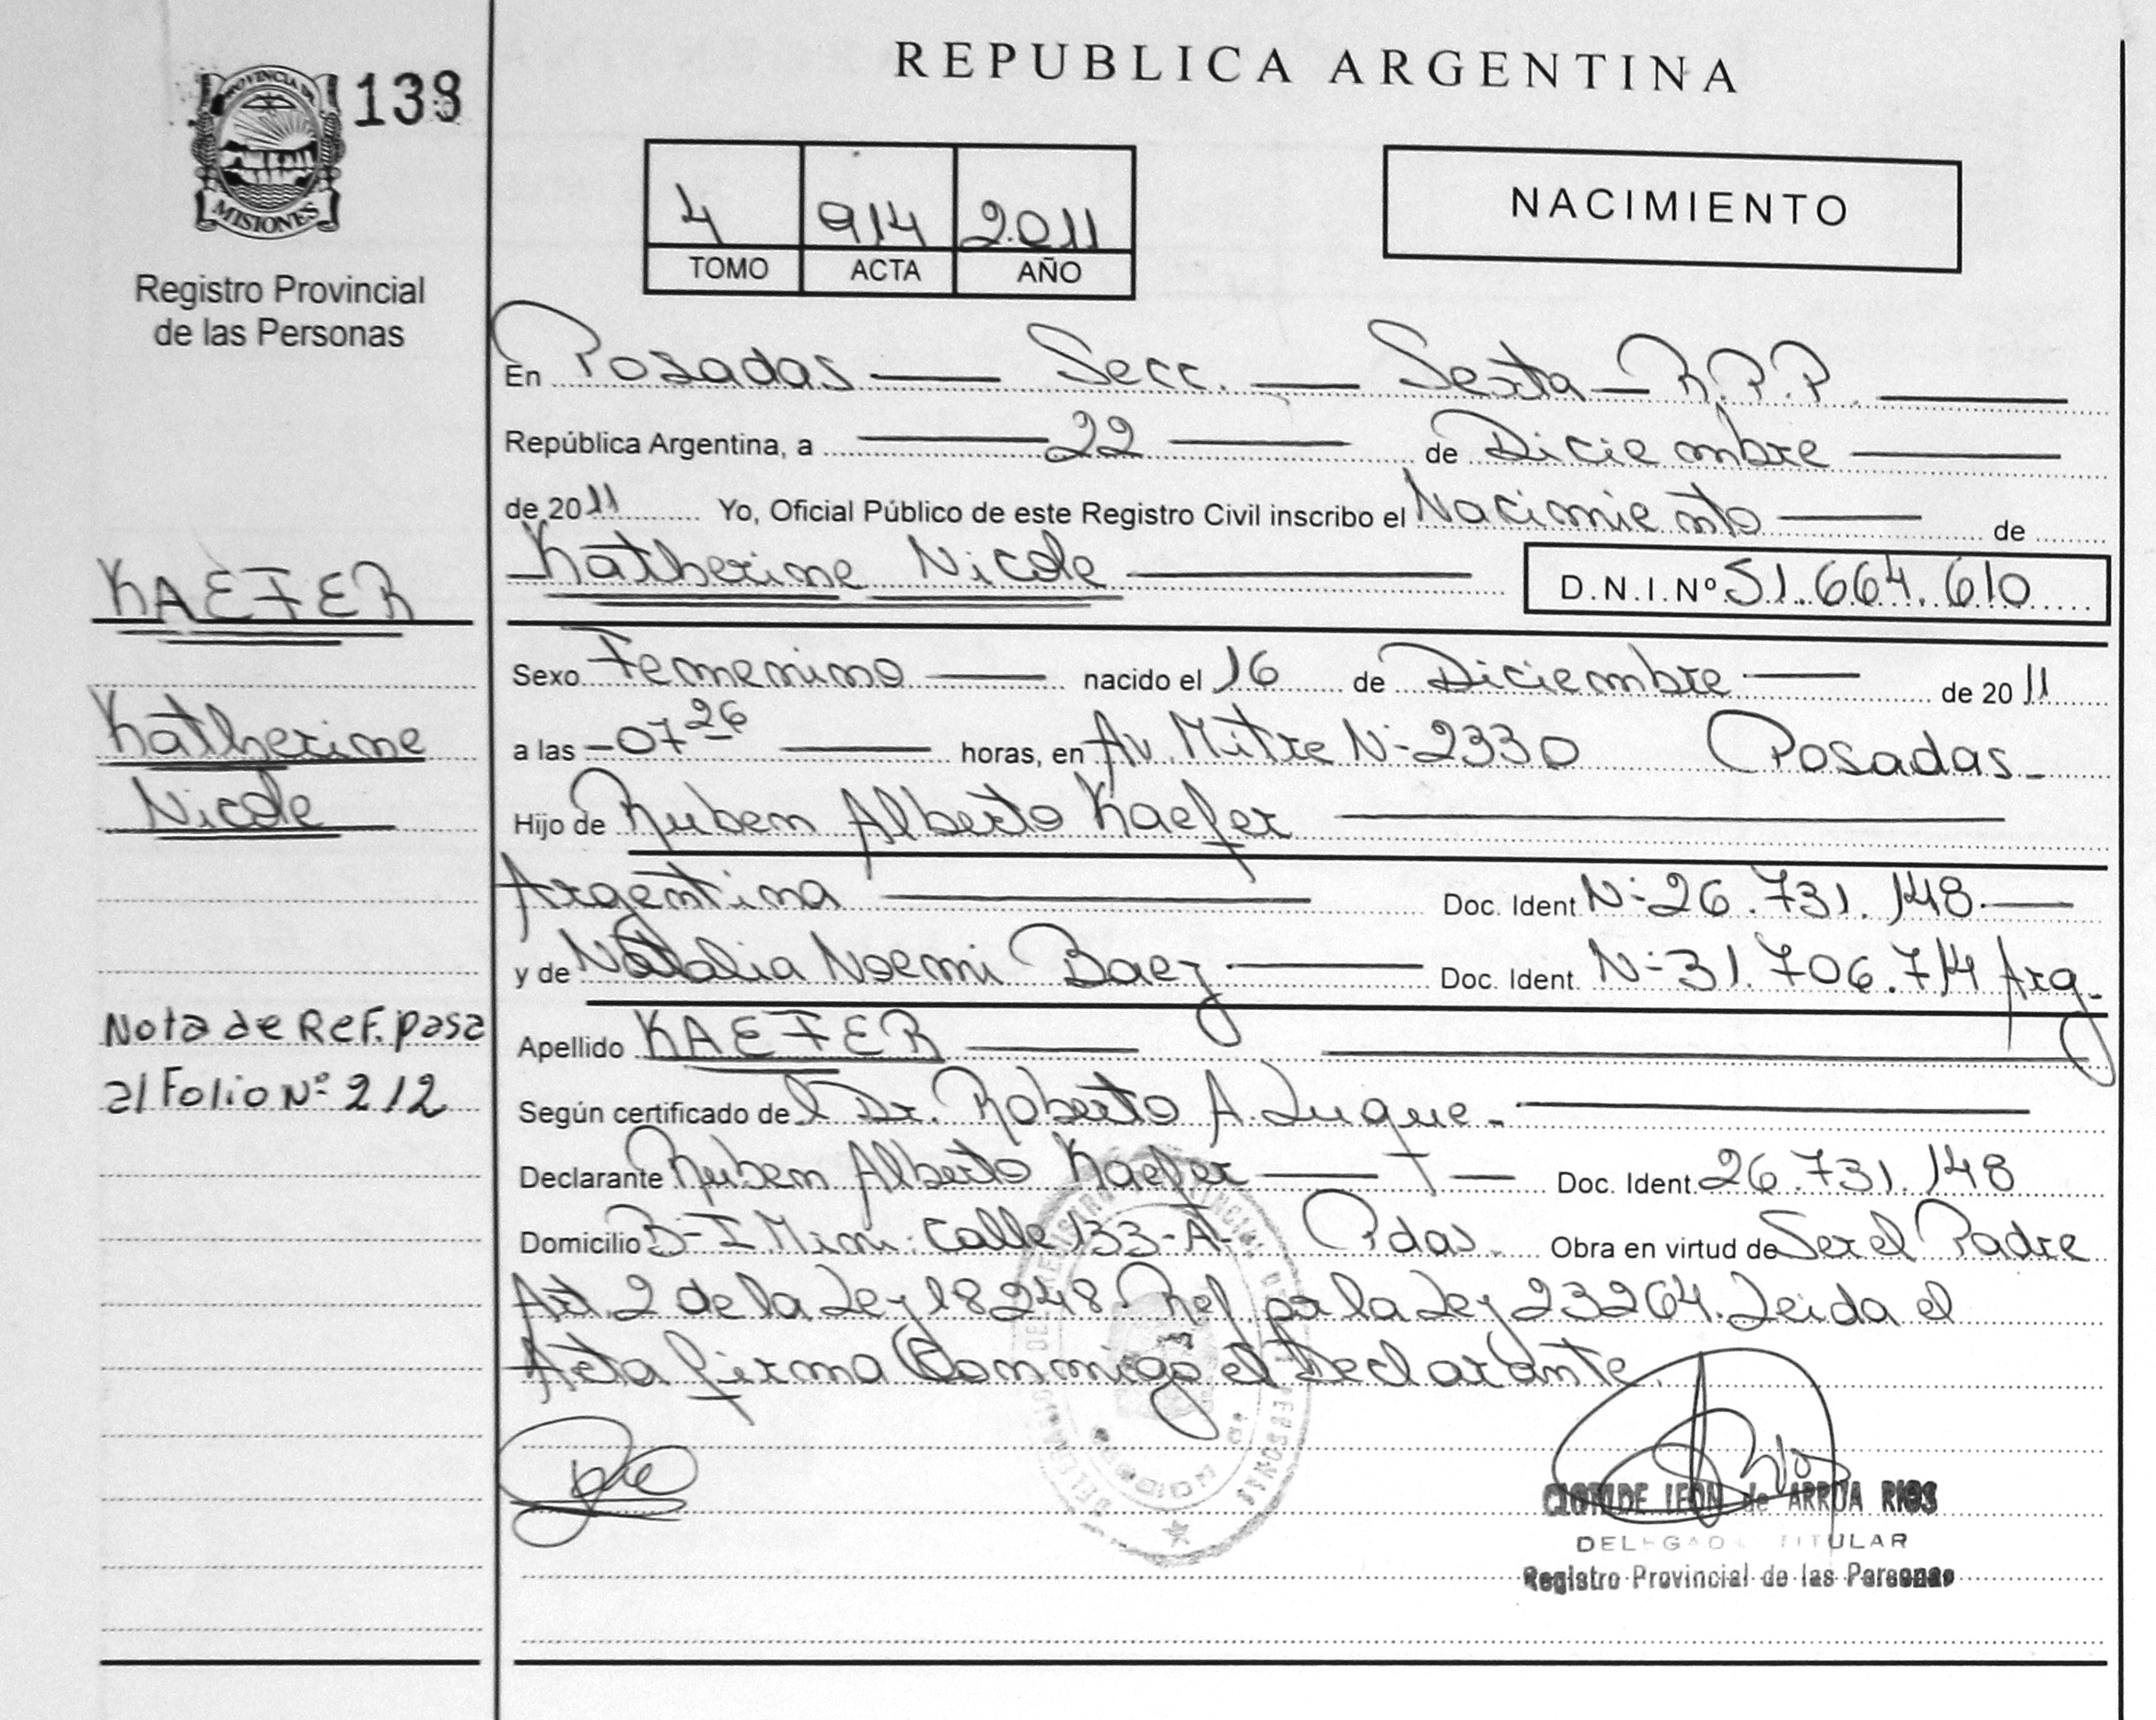 REPUBLICA ARGENTINA
PROVINCIA DE
MISIONES
138
Registro Provincial
de las Personas
4 914 2.011
TOMO ACTA AÑO
NACIMIENTO
En Posadas — Secc. — Sexta — R.P.P. —
República Argentina, a — 22 — de Diciembre —
de 2011 Yo, Oficial Público de este Registro Civil inscribo el Nacimiento — de
Katherine Nicole — D.N.I.Nº 51.664.610
KAEFER
Sexo Femenino — nacido el 16 de Diciembre — de 2011
Katherine
a las -07 26 — horas, en Av. Mitre Nº 2330 Posadas-
Nicole
Hijo de Ruben Alberto Kaefer —
Argentina — Doc. Ident Nº 26.731.148 —
y de Natalia Noemi Baez — Doc. Ident. Nº 31.706.714 Arg.
Nota de Ref. pasa
al Folio Nº 212
Apellido KAEFER —
Según certificado del Dr. Roberto A. Luque. —
Declarante Ruben Alberto Kaefer — Doc. Ident. 26.731.148
Domicilio B- I. Mini. Calle 133-A- Pdas. Obra en virtud de Ser el Padre
Art. 2 de la Ley 18248 Ref. por la Ley 23264. Leida el
Acta firma Conmigo el Declarante.
CLOTILDE LEON de ARRUA RIOS
DELEGADA TITULAR
Registro Provincial de las Personas